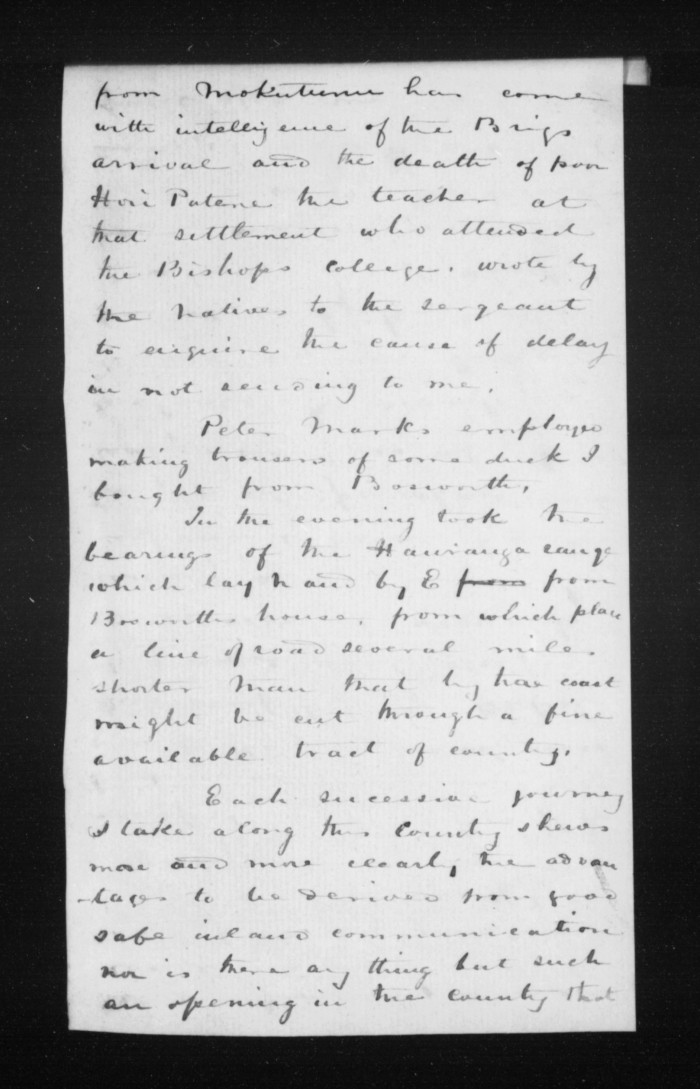 from Mokutunu has come
with intelligence of the Brigs
arrival and the death of poor
Hori Patene the teacher at
that settlement who attended
the Bishops College. wrote by
the natives to the sergeant
to enquire the cause of delay
in not sending to me.
Peter Marks employed
making trousers of some duck I
bought from Bosworth,
In the evening took the
bearings of the Hauranga range
which lay N and by E from from
Bosworths house, from which place
a line of road several miles
shorter than that by the coast
might be cut through a fine
available tract of country.
Each sucessive journey
I take along this Country shews
more and more clearly the advan
-tages to be derived from good
safe inland communication
nor is there any thing but such
an opening in the country that